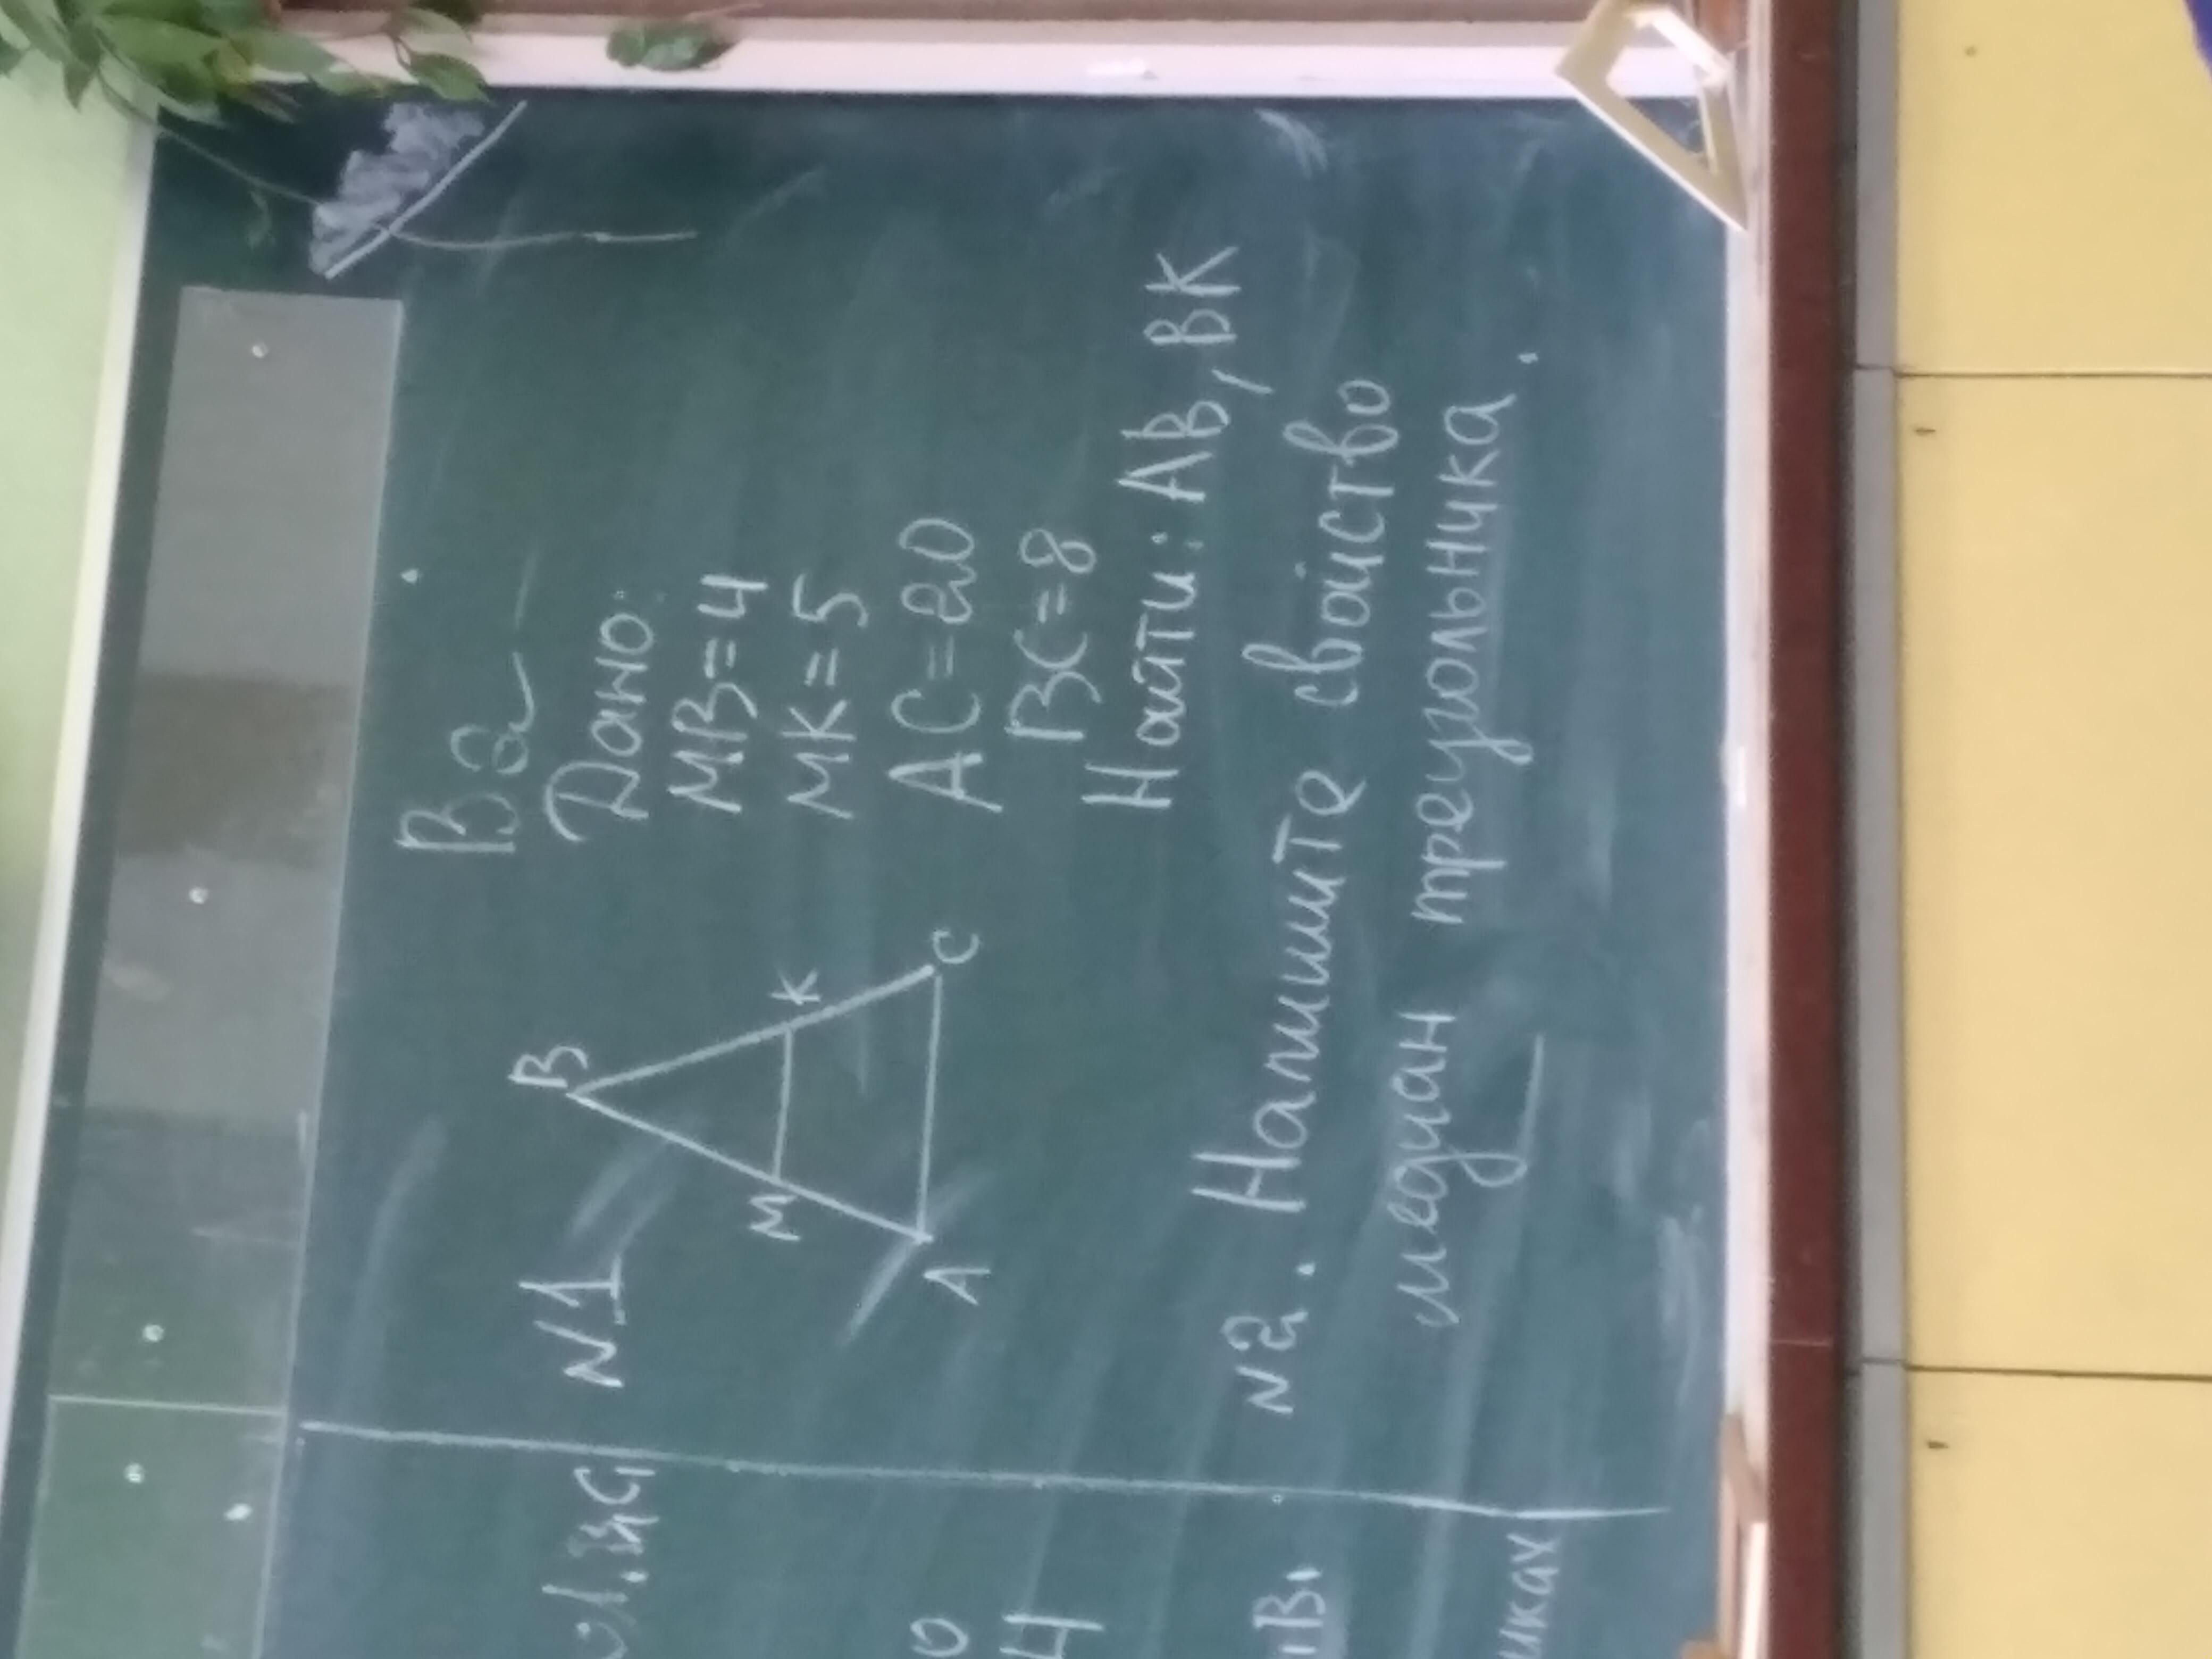 В2
N1
Дано:
MB=4
MK=5
AC=20
BC=8
Найти: AB, BK
B
M
K
A
C
N2. Напишите свойство
медиан треугольника.
0
4
иках